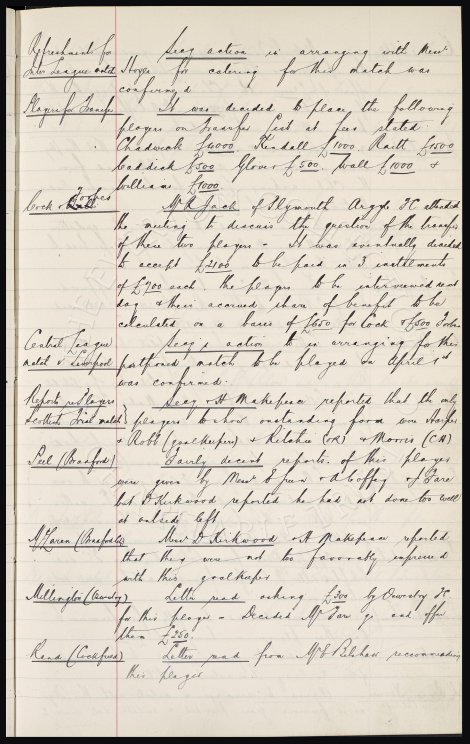 Refreshments for Secy action in arranging with Messrs
Inter League match for catering for this match was
confirmed
Players for Transfer It was decided to place the following
players on transfer list at fees stated
Chadwick £4000 Kendall £1000 Raitt £1500
Caddick £500 Glover £500 Wall £1000 &
Williams £1000
Cock & Forbes Mr R Jack of Plymouth Argyle FC attended
the meeting to discuss the question of the transfer
of these two players - It was eventually decided
to accept £2100 to be paid in 3 installments
of £700 each the players to be interviewed next
day & their accrued share of benefit to be
calculated on a basis of £650 for Cock & £500 Forbes
Central League Secy's action in arranging for this
match v Liverpool postponed match to be played on April 1st
was confirmed.
Reports re Players Secy & H Makepeace reported that the only
Scottish Trial match players to show outstanding form were Harper
& Robb (goalkeepers) & Ritchie (OR) & Morris (CH)
Peel (Bradford) Fairly decent reports of this player
were given by Messrs & Coffey & Fare
but D Kirkwood reported he had not done too well
at outside left
McLaren (Bradford City) Messrs D Kirkwood & H Makepeace reported
that they were not too favorably impressed
with this goalkeeper
Millington (Oswestry) Letter read asking £300 by Oswestry FC
for this player - Decided Mr Fare go and offer
them £250.
Rand (Cockfield) Letter read from Mr Belshaw recommending
this player